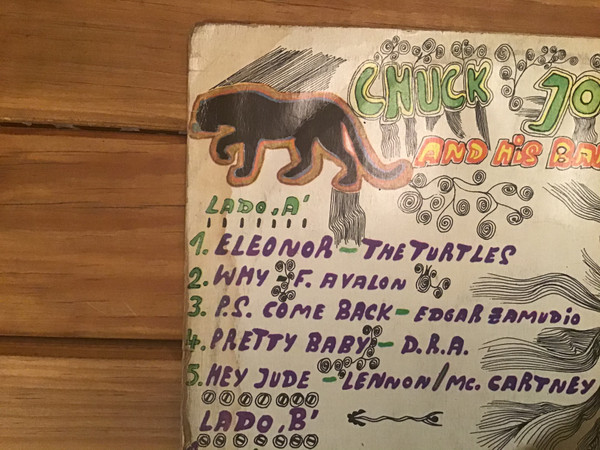 CHUCK JO
AND HIS BA
LADO, A'
1. ELEONOR - THE TURTLES
2. WHY - F. AVALON
3. P.S. COME BACK - EDGAR ZAMUDIO
4. PRETTY BABY - D.R.A.
5. HEY JUDE - LENNON/MC. CARTNEY
LADO, B'